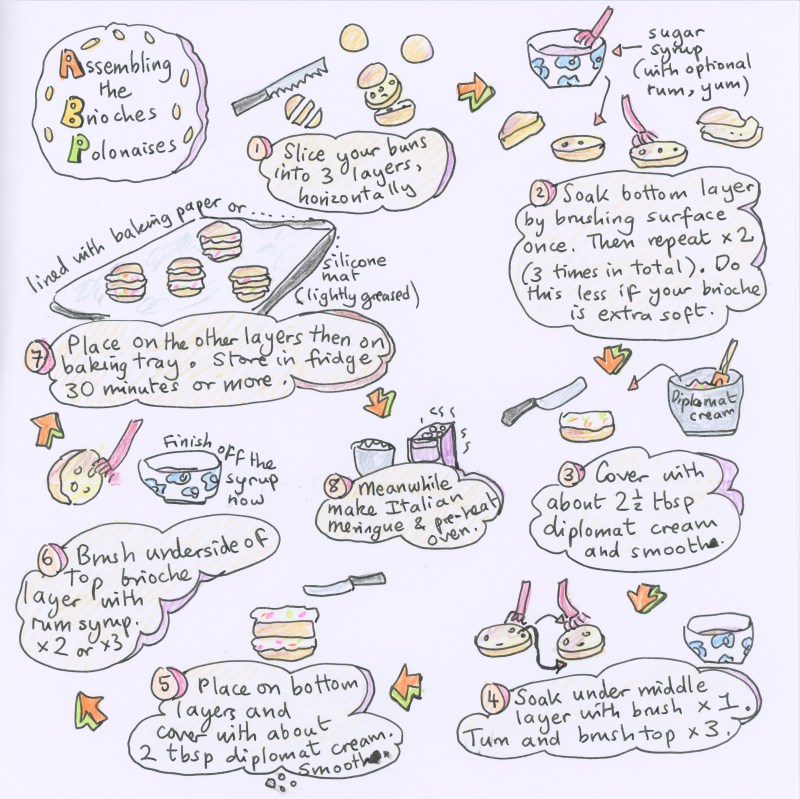 Assembling
the
Brioches
Polonaises
1 Slice your buns
into 3 layers,
horizontally
sugar
syrup
(with optional
rum, yum)
2 Soak bottom layer
by brushing surface
once. Then repeat x2
(3 times in total). Do
this less if your brioche
is extra soft.
Diplomat
cream
3 Cover with
about 2½ tbsp
diplomat cream
and smooth.
4 Soak under middle
layer with brush x 1.
Turn and brush top x 3.
5 Place on bottom
layers and
cover with about
2 tbsp diplomat cream.
Smooth
Finish off the
syrup
now
6 Brush underside of
top brioche
layer with
rum syrup.
x2 or x3
lined with baking paper or......
silicone
mat
(lightly greased)
7 Place on the other layers then on
baking tray. Store in fridge
30 minutes or more.
8 Meanwhile
make Italian
meringue & pre-heat
oven.